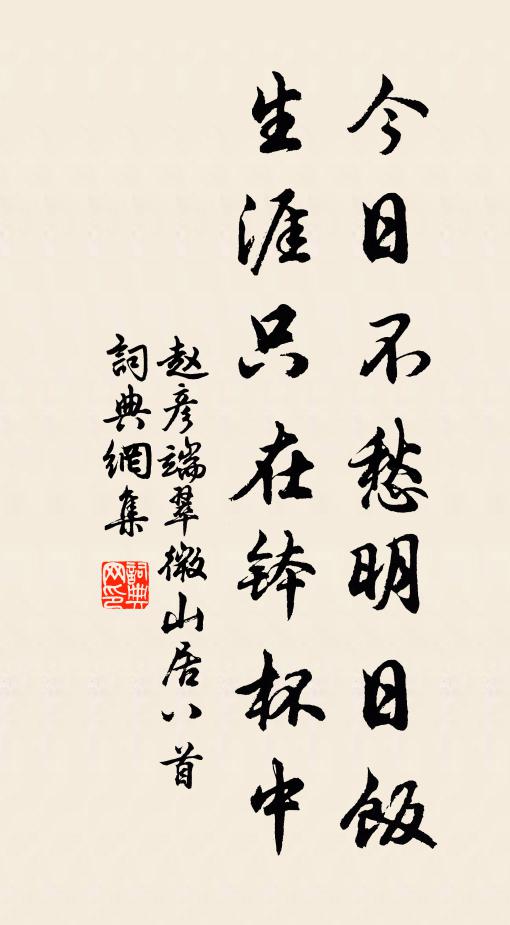 今日不愁明日飯
生涯只在鉢杯中
赵彦端翠微山居八首
詞典網集
詞典网印